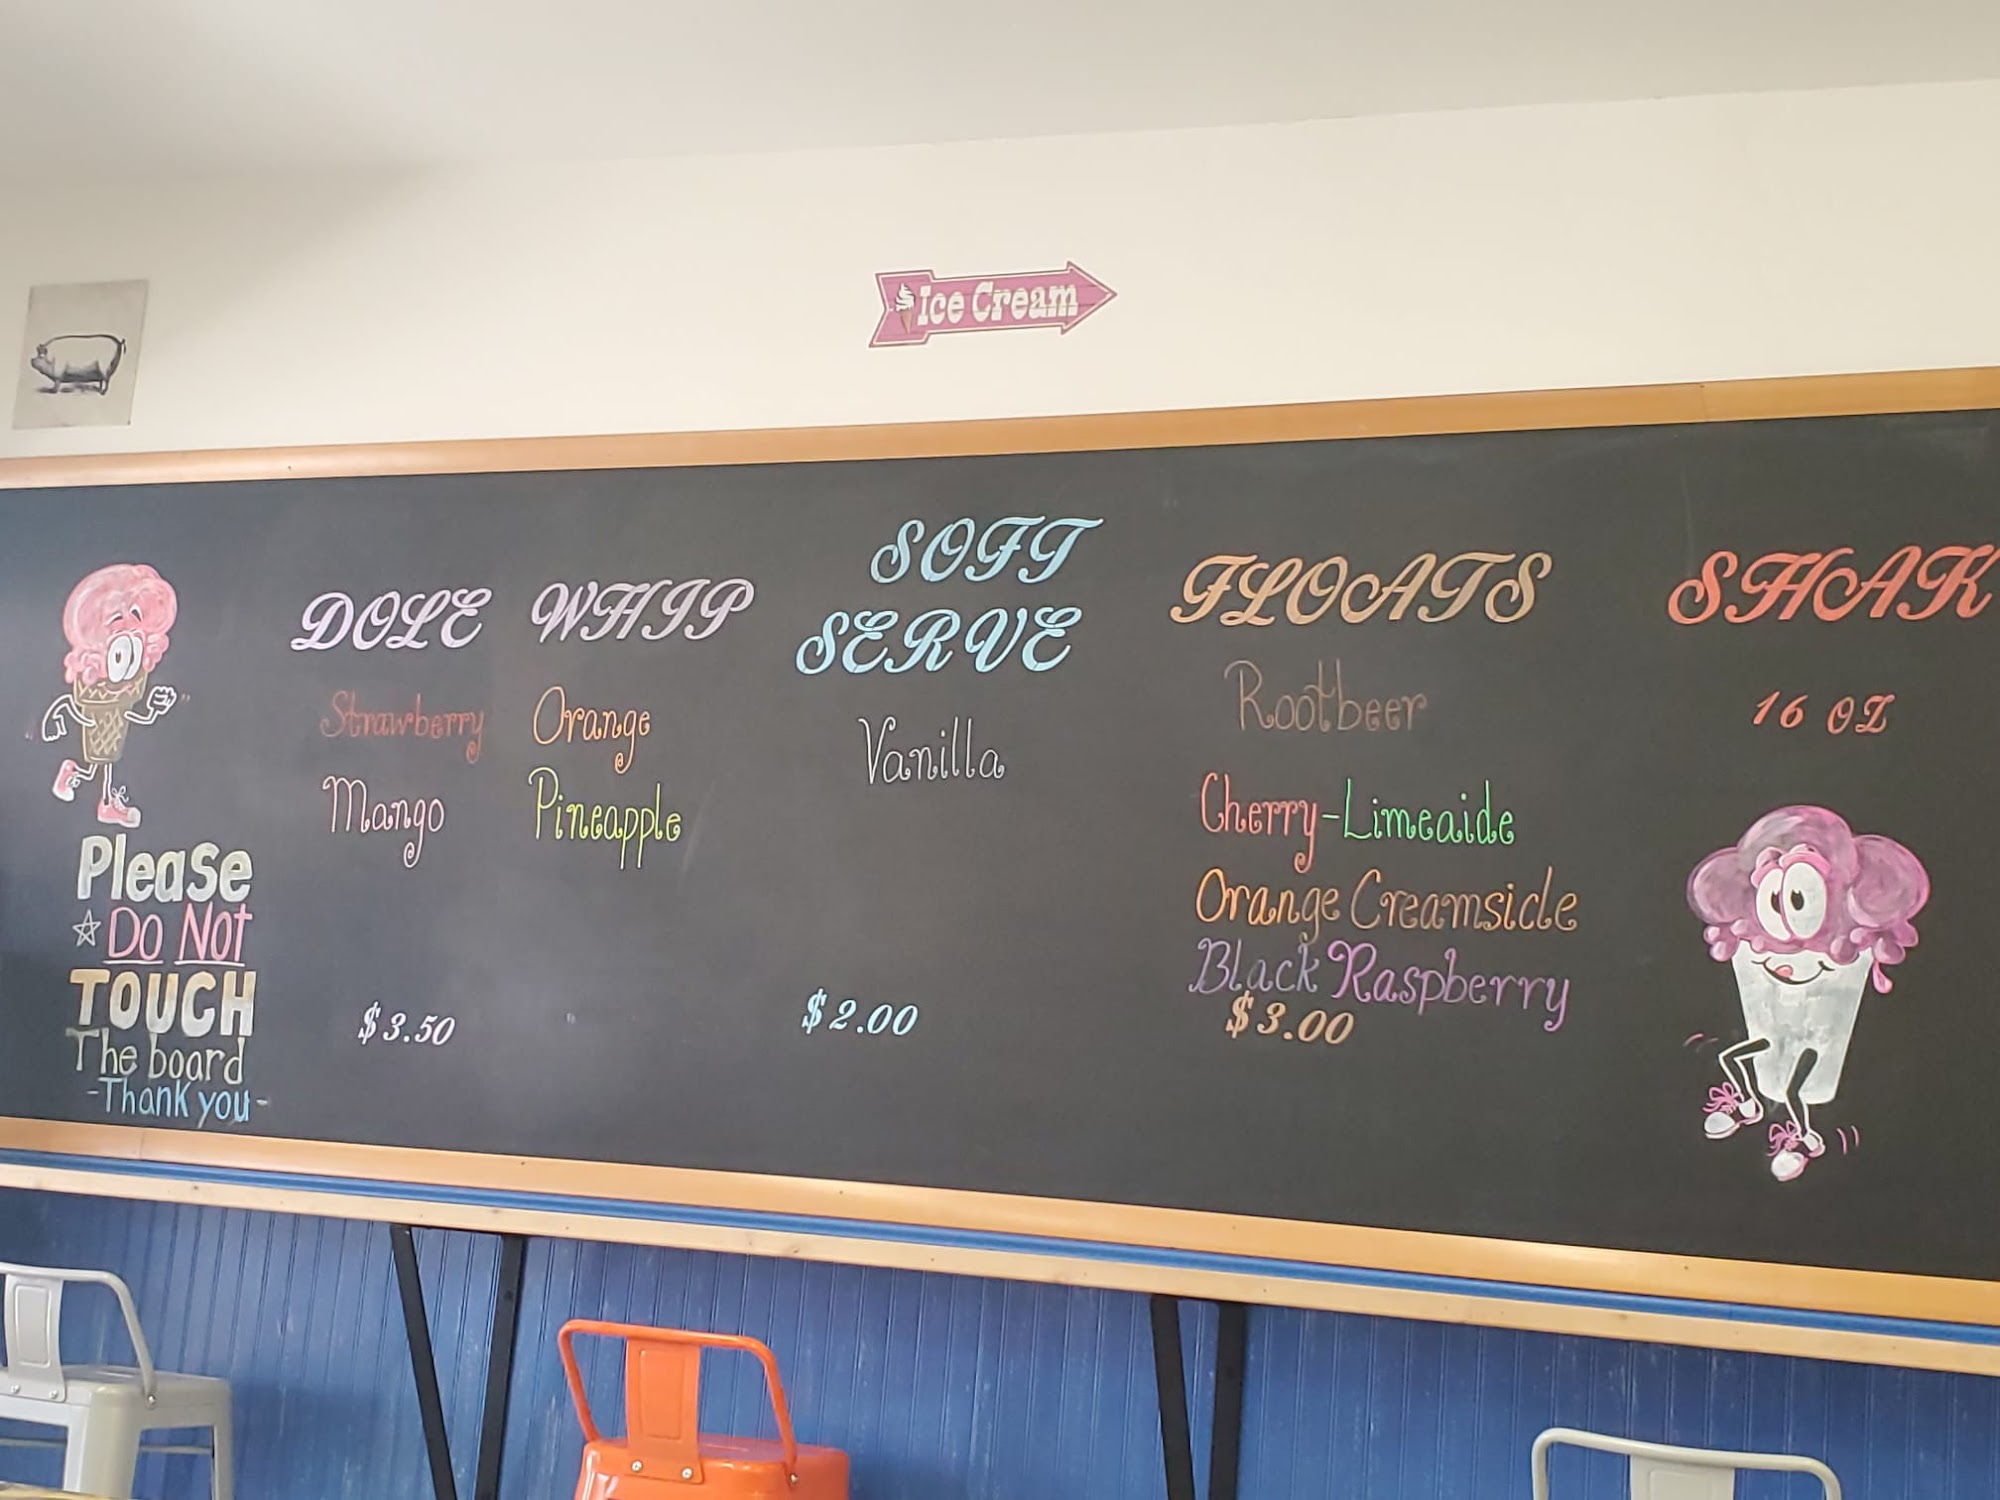 Ice Cream
Please
Do Not
TOUCH
The board
-Thank you-
DOLE WHIP
Strawberry Orange
Mango Pineapple
$3.50
SOFT
SERVE
Vanilla
$2.00
FLOATS
Rootbeer
Cherry-Limeaide
Orange Creamsicle
Black Raspberry
$3.00
SHAK
16 OZ